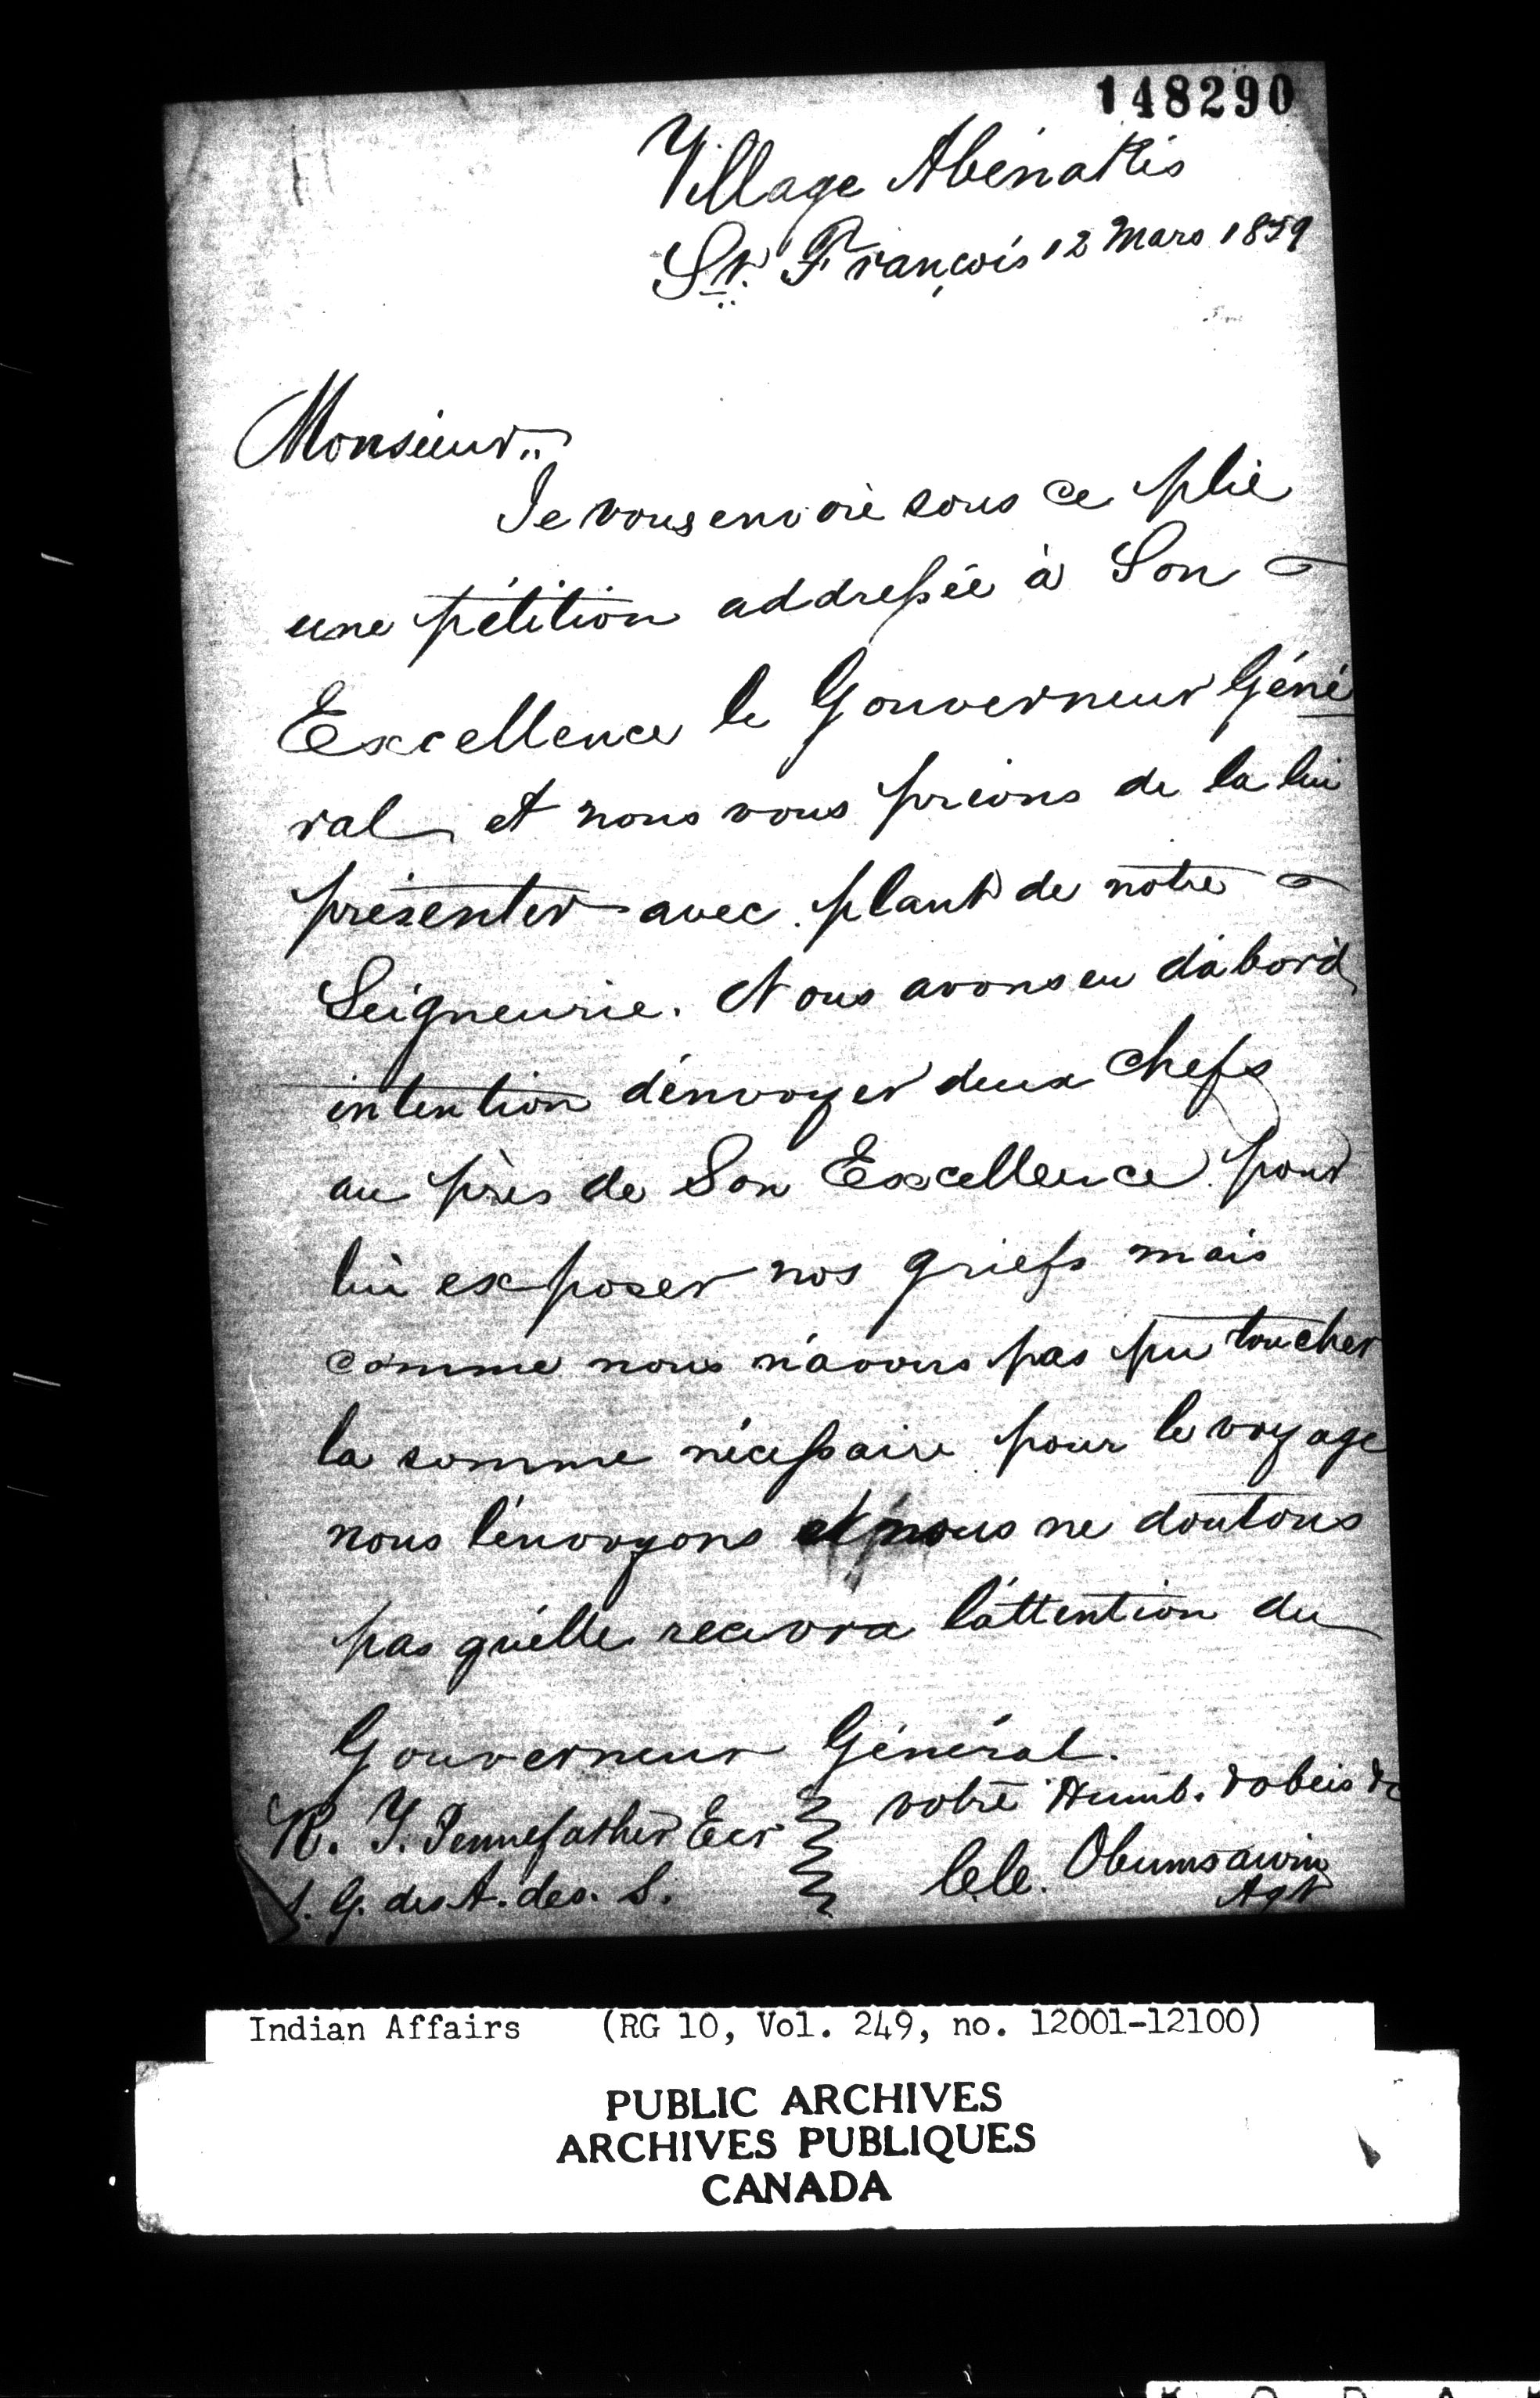 148290
Village Abénakis
St. François 12 Mars 1859
Monsieur..
Je vous envoie sous ce plie
une pétition addressée à Son
Excellence le Gouverneur Géné
ral et nous vous prions de la lui
présenter avec plant de notre
Seigneurie. Nous avons eu d'abord
intention d'envoyer deux chefs
au près de Son Excellence pour
lui exposer nos griefs mais
comme nous n'avons pas pu toucher
la somme nécessaire pour le voyage
nous l'envoyons et nous ne doutons
pas qu'elle recevra l'attention du
Gouverneur Général.
votre Humb. &
R. T. Pennefather Ecr
S. G. des A. des. S.
Obumsawin
Agt
Indian Affairs (RG 10, Vol. 249, no. 12001-12100)
PUBLIC ARCHIVES
ARCHIVES PUBLIQUES
CANADA